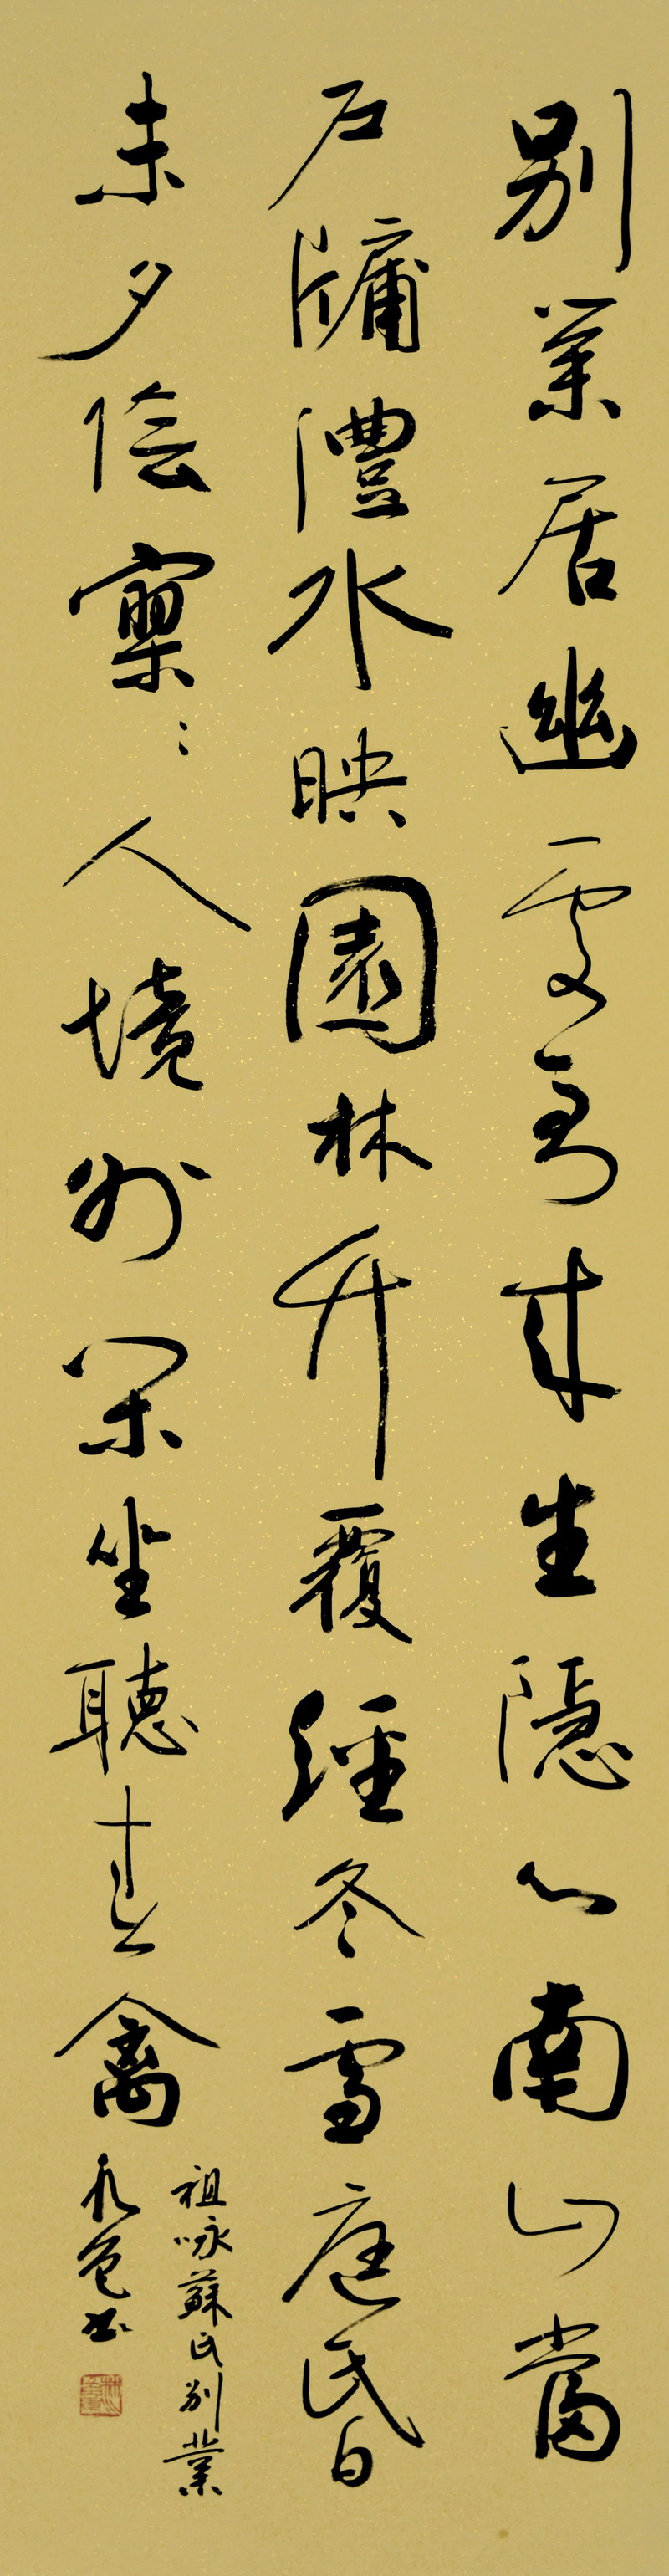 别業居幽處到来生隱心南山當
户牖澧水映園林竹覆經冬雪庭昏
未夕陰寥〻人境外閑坐聽春禽
祖咏蘇氏别業
書